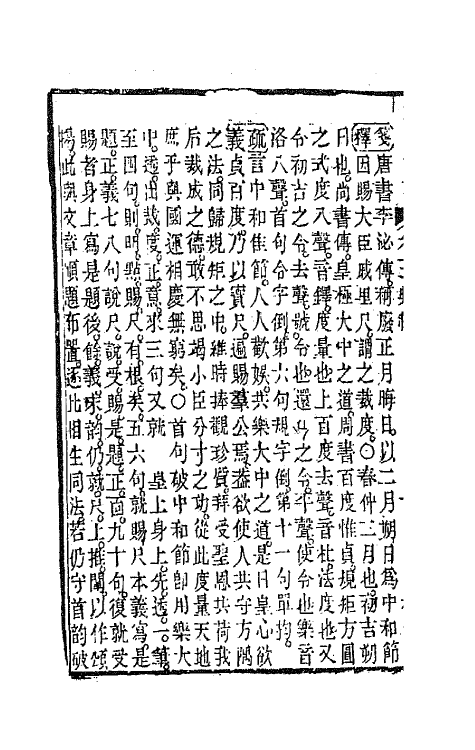 箋唐書李泌傳稱廢正月晦日以二月朔日爲中和節
釋因賜大臣戚里尺謂之裁度○春仲二月也初吉朔
日也尚書傳皇極大中之道周書百度惟貞規矩方圓
之式度入聲音鐸度量也上百度去聲音杜法度也又
令初吉之令去聲號令也還以之令平聲使令也樂音
洛入聲首句令字倒第六句規字倒第十一句單拘
疏言中和佳節人人歡娛共樂大中之道是日皇心欲
義貞百度乃以寶尺遍賜羣公焉蓋欲使人共守方隅
之法同歸規矩之中維時捧觀珍質拜受聖恩共荷我
后裁成之德敢不思竭小臣分寸之功從此度量天地
庶乎與國運相慶無窮矣○首句破中和節卽用樂大
中透出裁度正意次三句又就 皇上身上先透一筆
至四句則明點賜尺有根矣五六句就賜尺本義寫是
題正義七八句說尺說受賜是題正面九十句復就受
賜者身上寫是題後餘義末韵仍就尺上推開以作頌
揚此與文章順題布置逐比相生同法若仍守首韵破